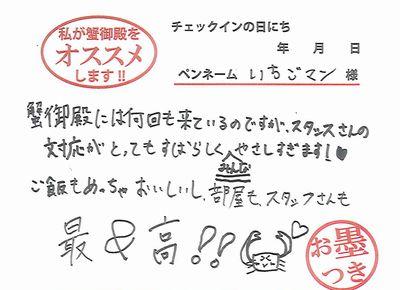 私が蟹御殿を
オススメ
します!!
チェックインの日にち
年 月 日
ペンネーム いちごマン 様
蟹御殿には何回も来ているのですが、スタッフさんの
対応がとってもすばらしくみんなやさしすぎます!♥
ご飯もめっちゃおいしいし、部屋も、スタッフさんも
最&高!!
お墨
つき